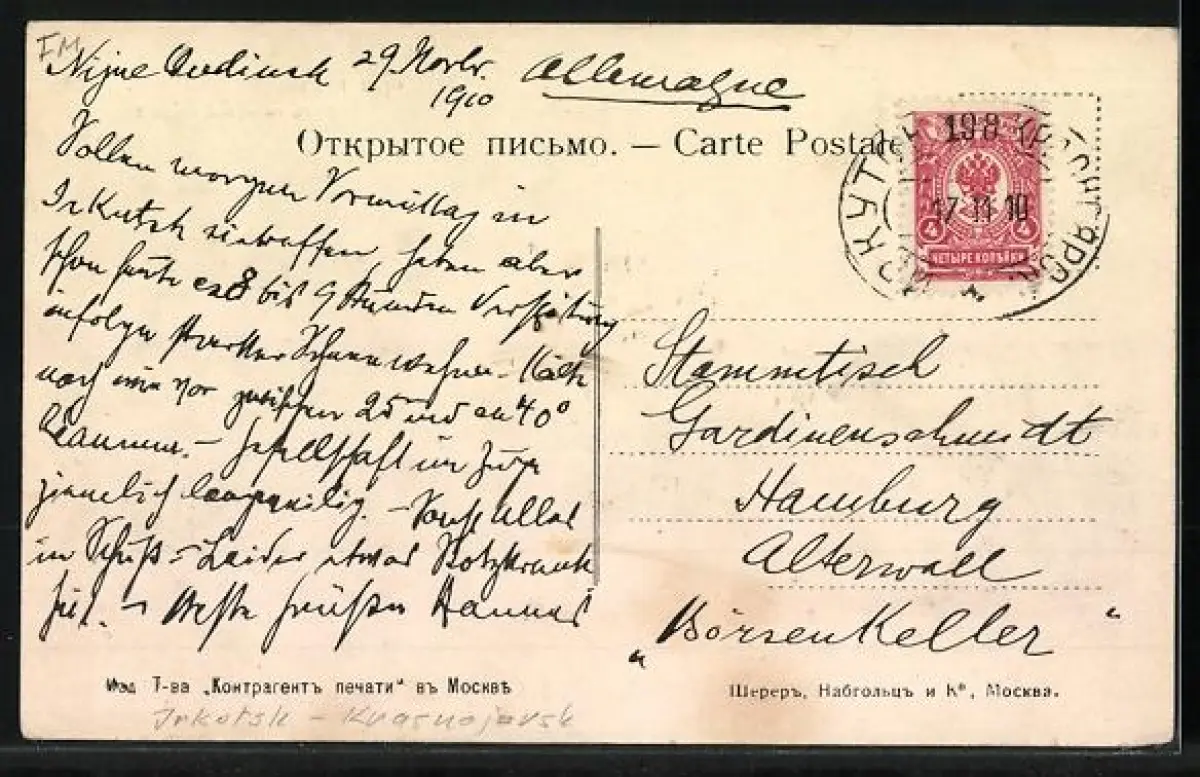 Nijne Oudinsk 29. Novbr.
1910
Allemagne
Открытое письмо. — Carte Postale
198
17 11 10
4 4
ЧЕТЫРЕ КОПѢЙКИ
Sollen morgen Vormittag in
Irkutsk eintreffen, haben aber
schon heute ca 8 bis 9 Stunden Verspätung
infolge starker Schneewehen. – Kälte
nach wie vor zwischen 25 und ca 40°
Reaumur. – Gesellschaft im Zuge
ziemlich langweilig. – Sonst alles
im Schuß – Leider etwas
– Beste Grüße Hannes
Stammtisch
Gardinenschmidt
Hamburg
Alterwall
„Börsenkeller“
Изд. Т-ва „Контрагентъ печати“ въ Москвѣ
Шереръ, Набгольцъ и Кº, Москва.
Irkutsk – Krasnojarsk